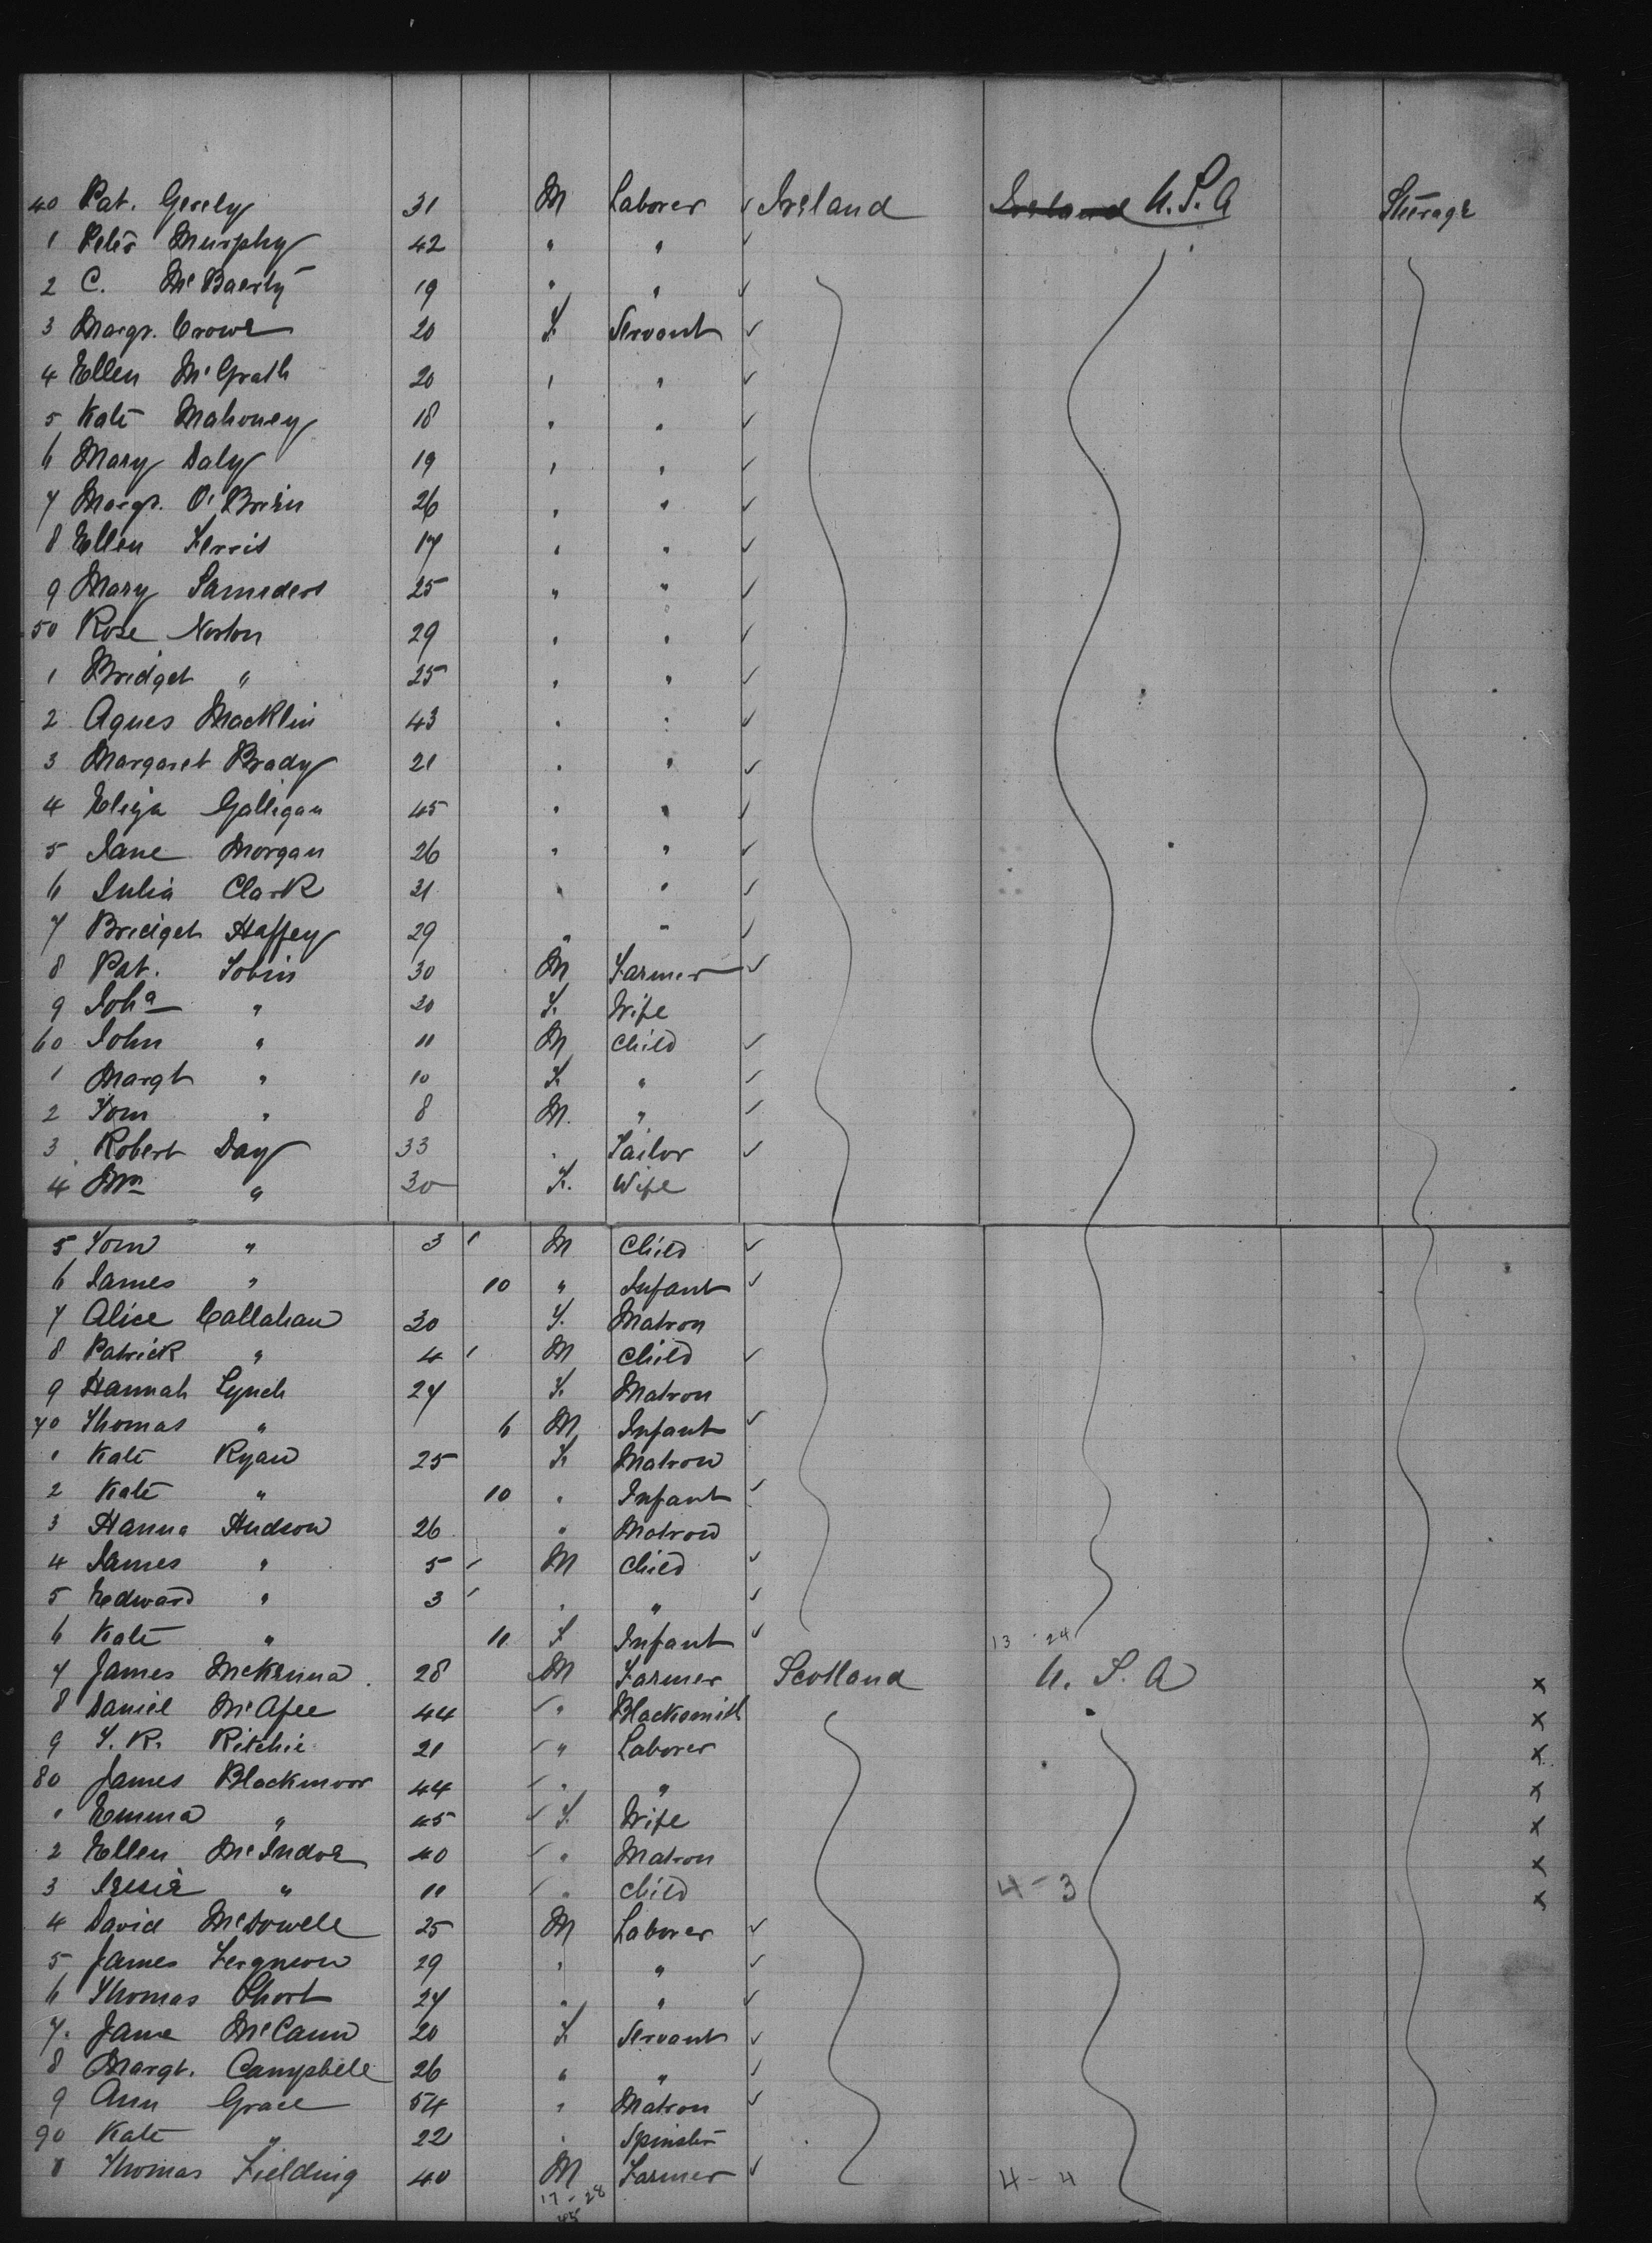 40 Pat. Gerely 31 M Laborer ✓ Ireland Ireland U.S.A Steerage
1 Peter Murphy 42 " " ✓
2 C. Mc Baerty 19 " " ✓
3 Margr. Crowe 20 F. Servant ✓
4 Ellen McGrath 20 " " ✓
5 Kate Mahoney 18 " " ✓
6 Mary Daly 19 " " ✓
7 Margr. O'Brien 26 " " ✓
8 Ellen Ferris 17 " " ✓
9 Mary Saunders 25 " " ✓
50 Rose Norton 29 " " ✓
1 Bridget " 25 " " ✓
2 Agnes Macklin 43 " " ✓
3 Margaret Brady 21 " " ✓
4 Eliza Galligan 45 " " ✓
5 Jane Morgan 26 " " ✓
6 Julia Clark 21 " " ✓
7 Bridget Haffey 29 " " ✓
8 Pat. Tobin 30 M Farmer ✓
9 Joha " 20 F. Wife
60 John " 11 M Child ✓
1 Margt " 10 F. " ✓
2 Tom " 8 M. " ✓
3 Robert Day 33 " Tailor ✓
4 Mrs " 30 F. Wife
5 Tom " 3 M Child ✓
6 James " 10 " Infant ✓
7 Alice Callahan 30 F. Matron
8 Patrick " 4 M Child ✓
9 Hannah Lynch 27 F. Matron
70 Thomas " 6 M Infant ✓
1 Kate Ryan 25 F. Matron
2 Kate " 10 " Infant ✓
3 Hanna Hudson 26 " Matron
4 James " 5 M Child ✓
5 Edward " 3 " " ✓
6 Kate " 11 F Infant ✓ 13 - 24
7 James McKenna 28 M Farmer Scotland U.S.A x
8 Daniel McAfee 44 " Blacksmith x
9 T. R. Ritchie 21 " Laborer x
80 James Blackmoor 44 " " x
1 Emma " 45 F. Wife x
2 Ellen McIndoe 40 " Matron x
3 Jessie " 11 " Child 4-3 x
4 David McDowell 25 M Laborer ✓
5 James Ferguson 29 " " ✓
6 Thomas Short 27 " " ✓
7. Jane McCann 20 F. Servant ✓
8 Margt. Campbell 26 " " ✓
9 Ann Grace 54 " Matron ✓
90 Kate " 22 " Spinster
1 Thomas Fielding 40 M Farmer ✓ 4-4
17 - 28
45